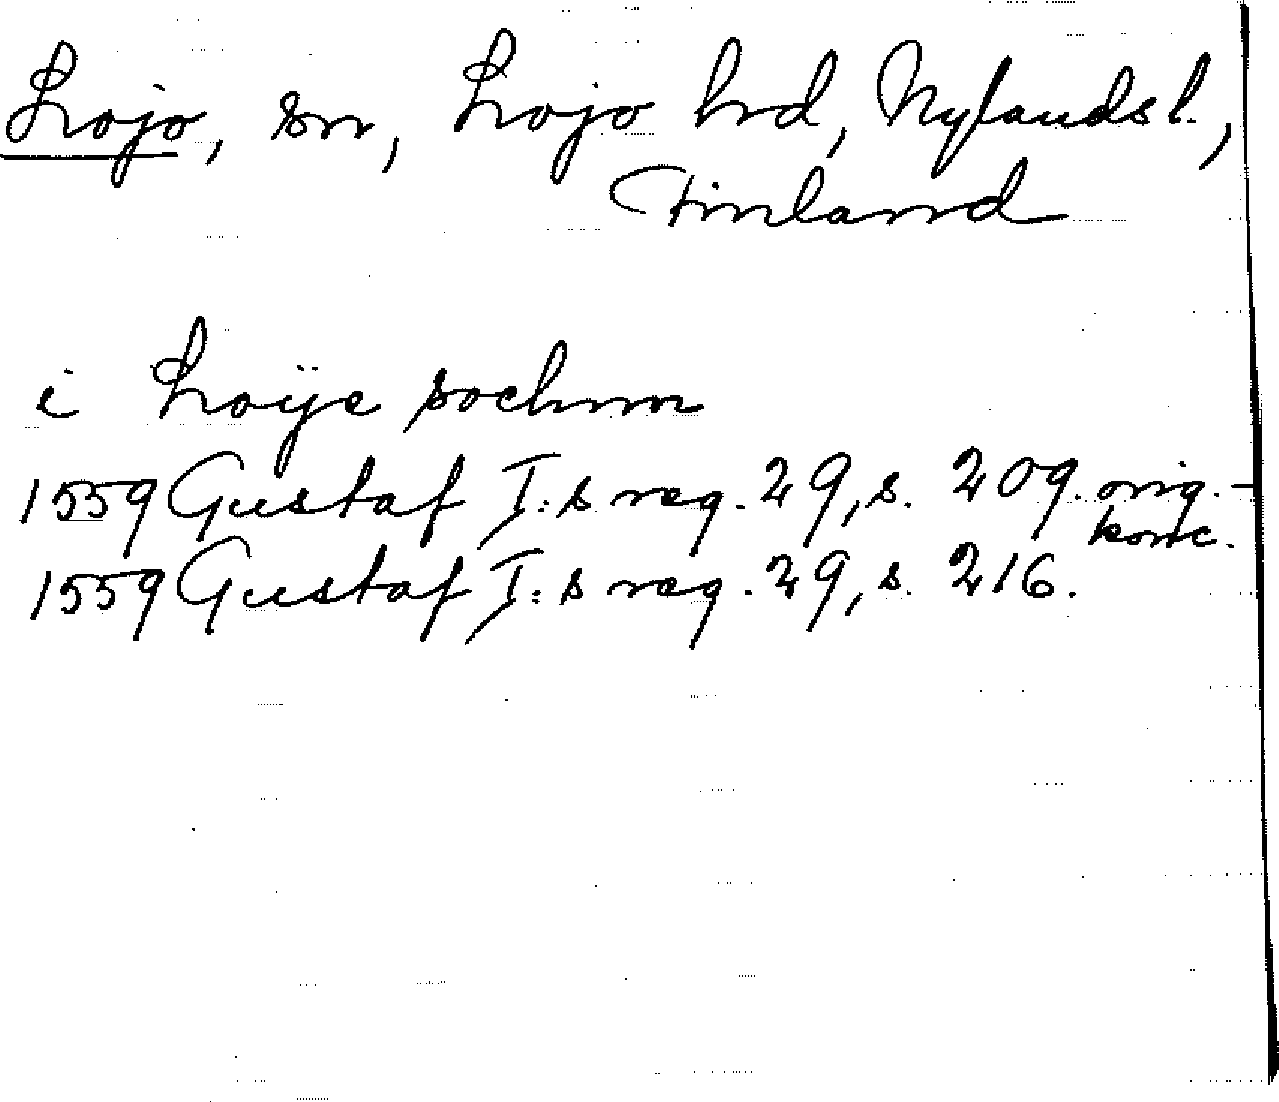 Lojo, sn, Lojo hrd, Nylands l.,
Finland
i Loÿe sochnn
1559 Gustaf I:s reg. 29, s. 209. orig.-
konc.
1559 Gustaf I:s reg. 29, s. 216.